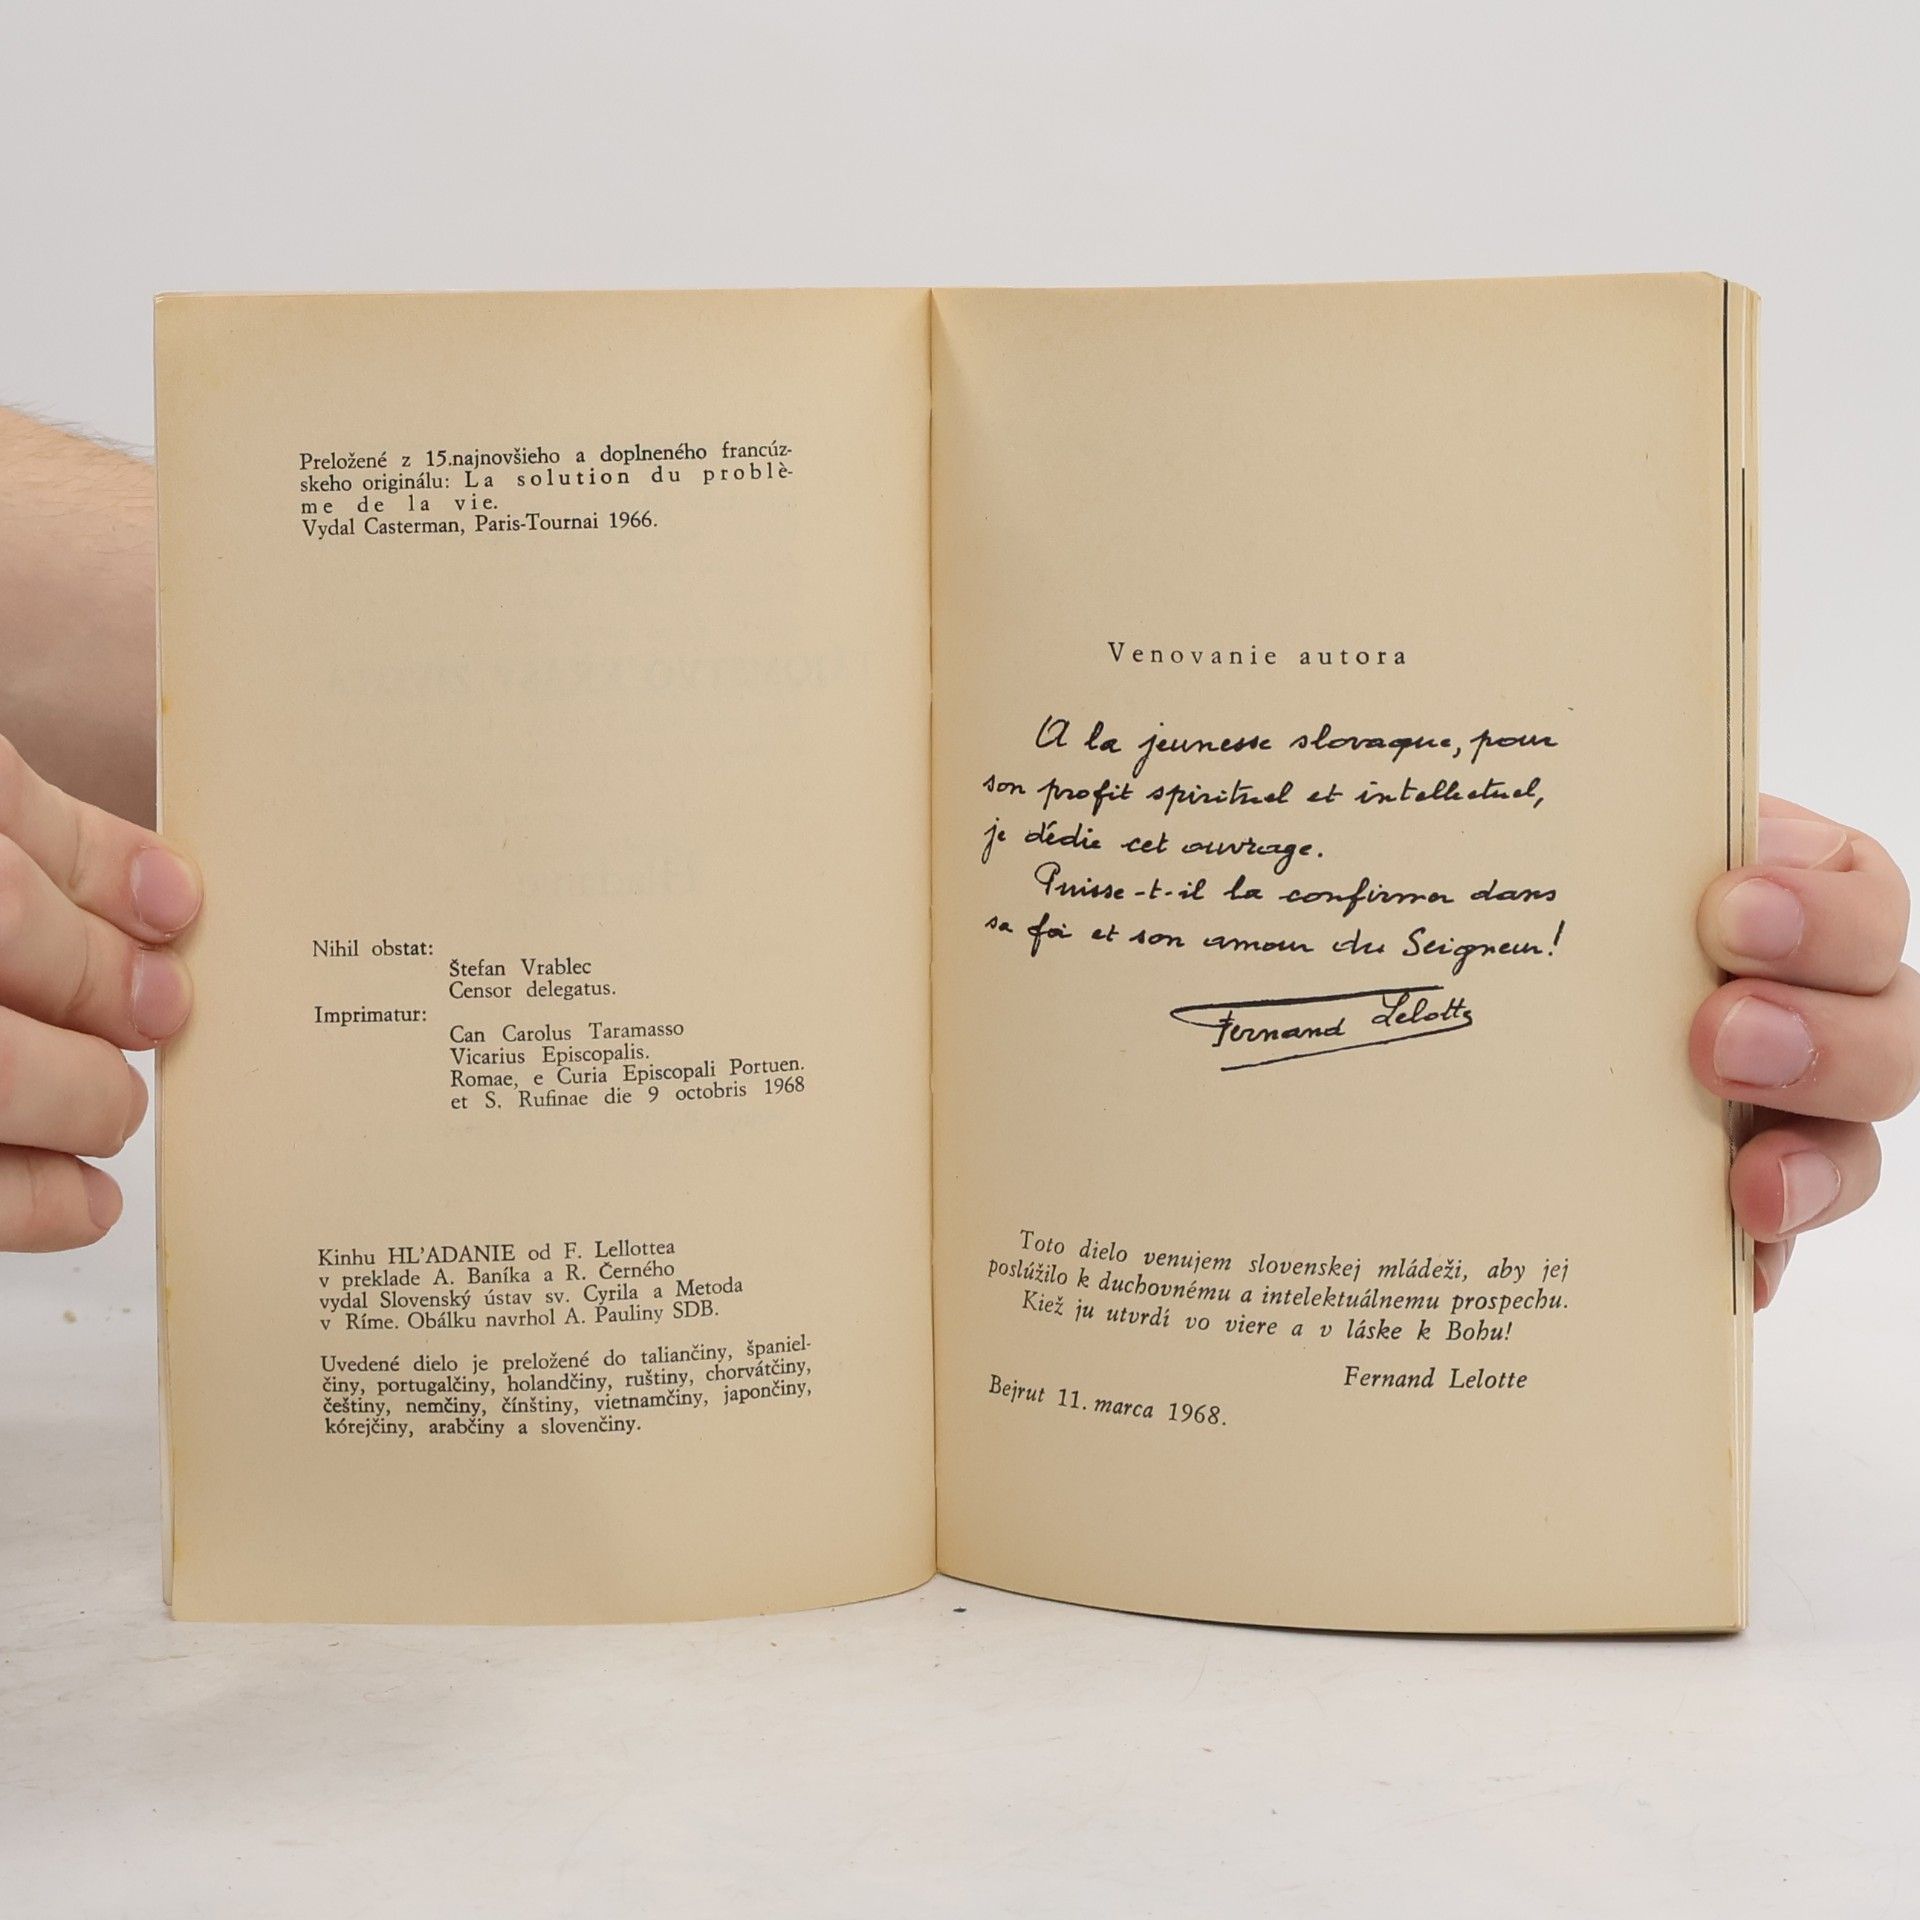 Preložené z 15.najnovšieho a doplneného francúz-
skeho originálu: La solution du problè-
me de la vie.
Vydal Casterman, Paris-Tournai 1966.
Nihil obstat:
Štefan Vrablec
Censor delegatus.
Imprimatur:
Can Carolus Taramasso
Vicarius Episcopalis.
Romae, e Curia Episcopali Portuen.
et S. Rufinae die 9 octobris 1968
Kinhu HL'ADANIE od F. Lellottea
v preklade A. Baníka a R. Černého
vydal Slovenský ústav sv. Cyrila a Metoda
v Ríme. Obálku navrhol A. Pauliny SDB.
Uvedené dielo je preložené do taliančiny, španiel-
činy, portugalčiny, holandčiny, ruštiny, chorvátčiny,
češtiny, nemčiny, čínštiny, vietnamčiny, japončiny,
kórejčiny, arabčiny a slovenčiny.
Venovanie autora
A la jeunesse slovaque, pour
son profit spirituel et intellectuel,
je dédie cet ouvrage.
Puisse-t-il la confirmer dans
sa foi et son amour du Seigneur!
Fernand Lelotte
Toto dielo venujem slovenskej mládeži, aby jej
poslúžilo k duchovnému a intelektuálnemu prospechu.
Kiež ju utvrdí vo viere a v láske k Bohu!
Fernand Lelotte
Bejrut 11. marca 1968.